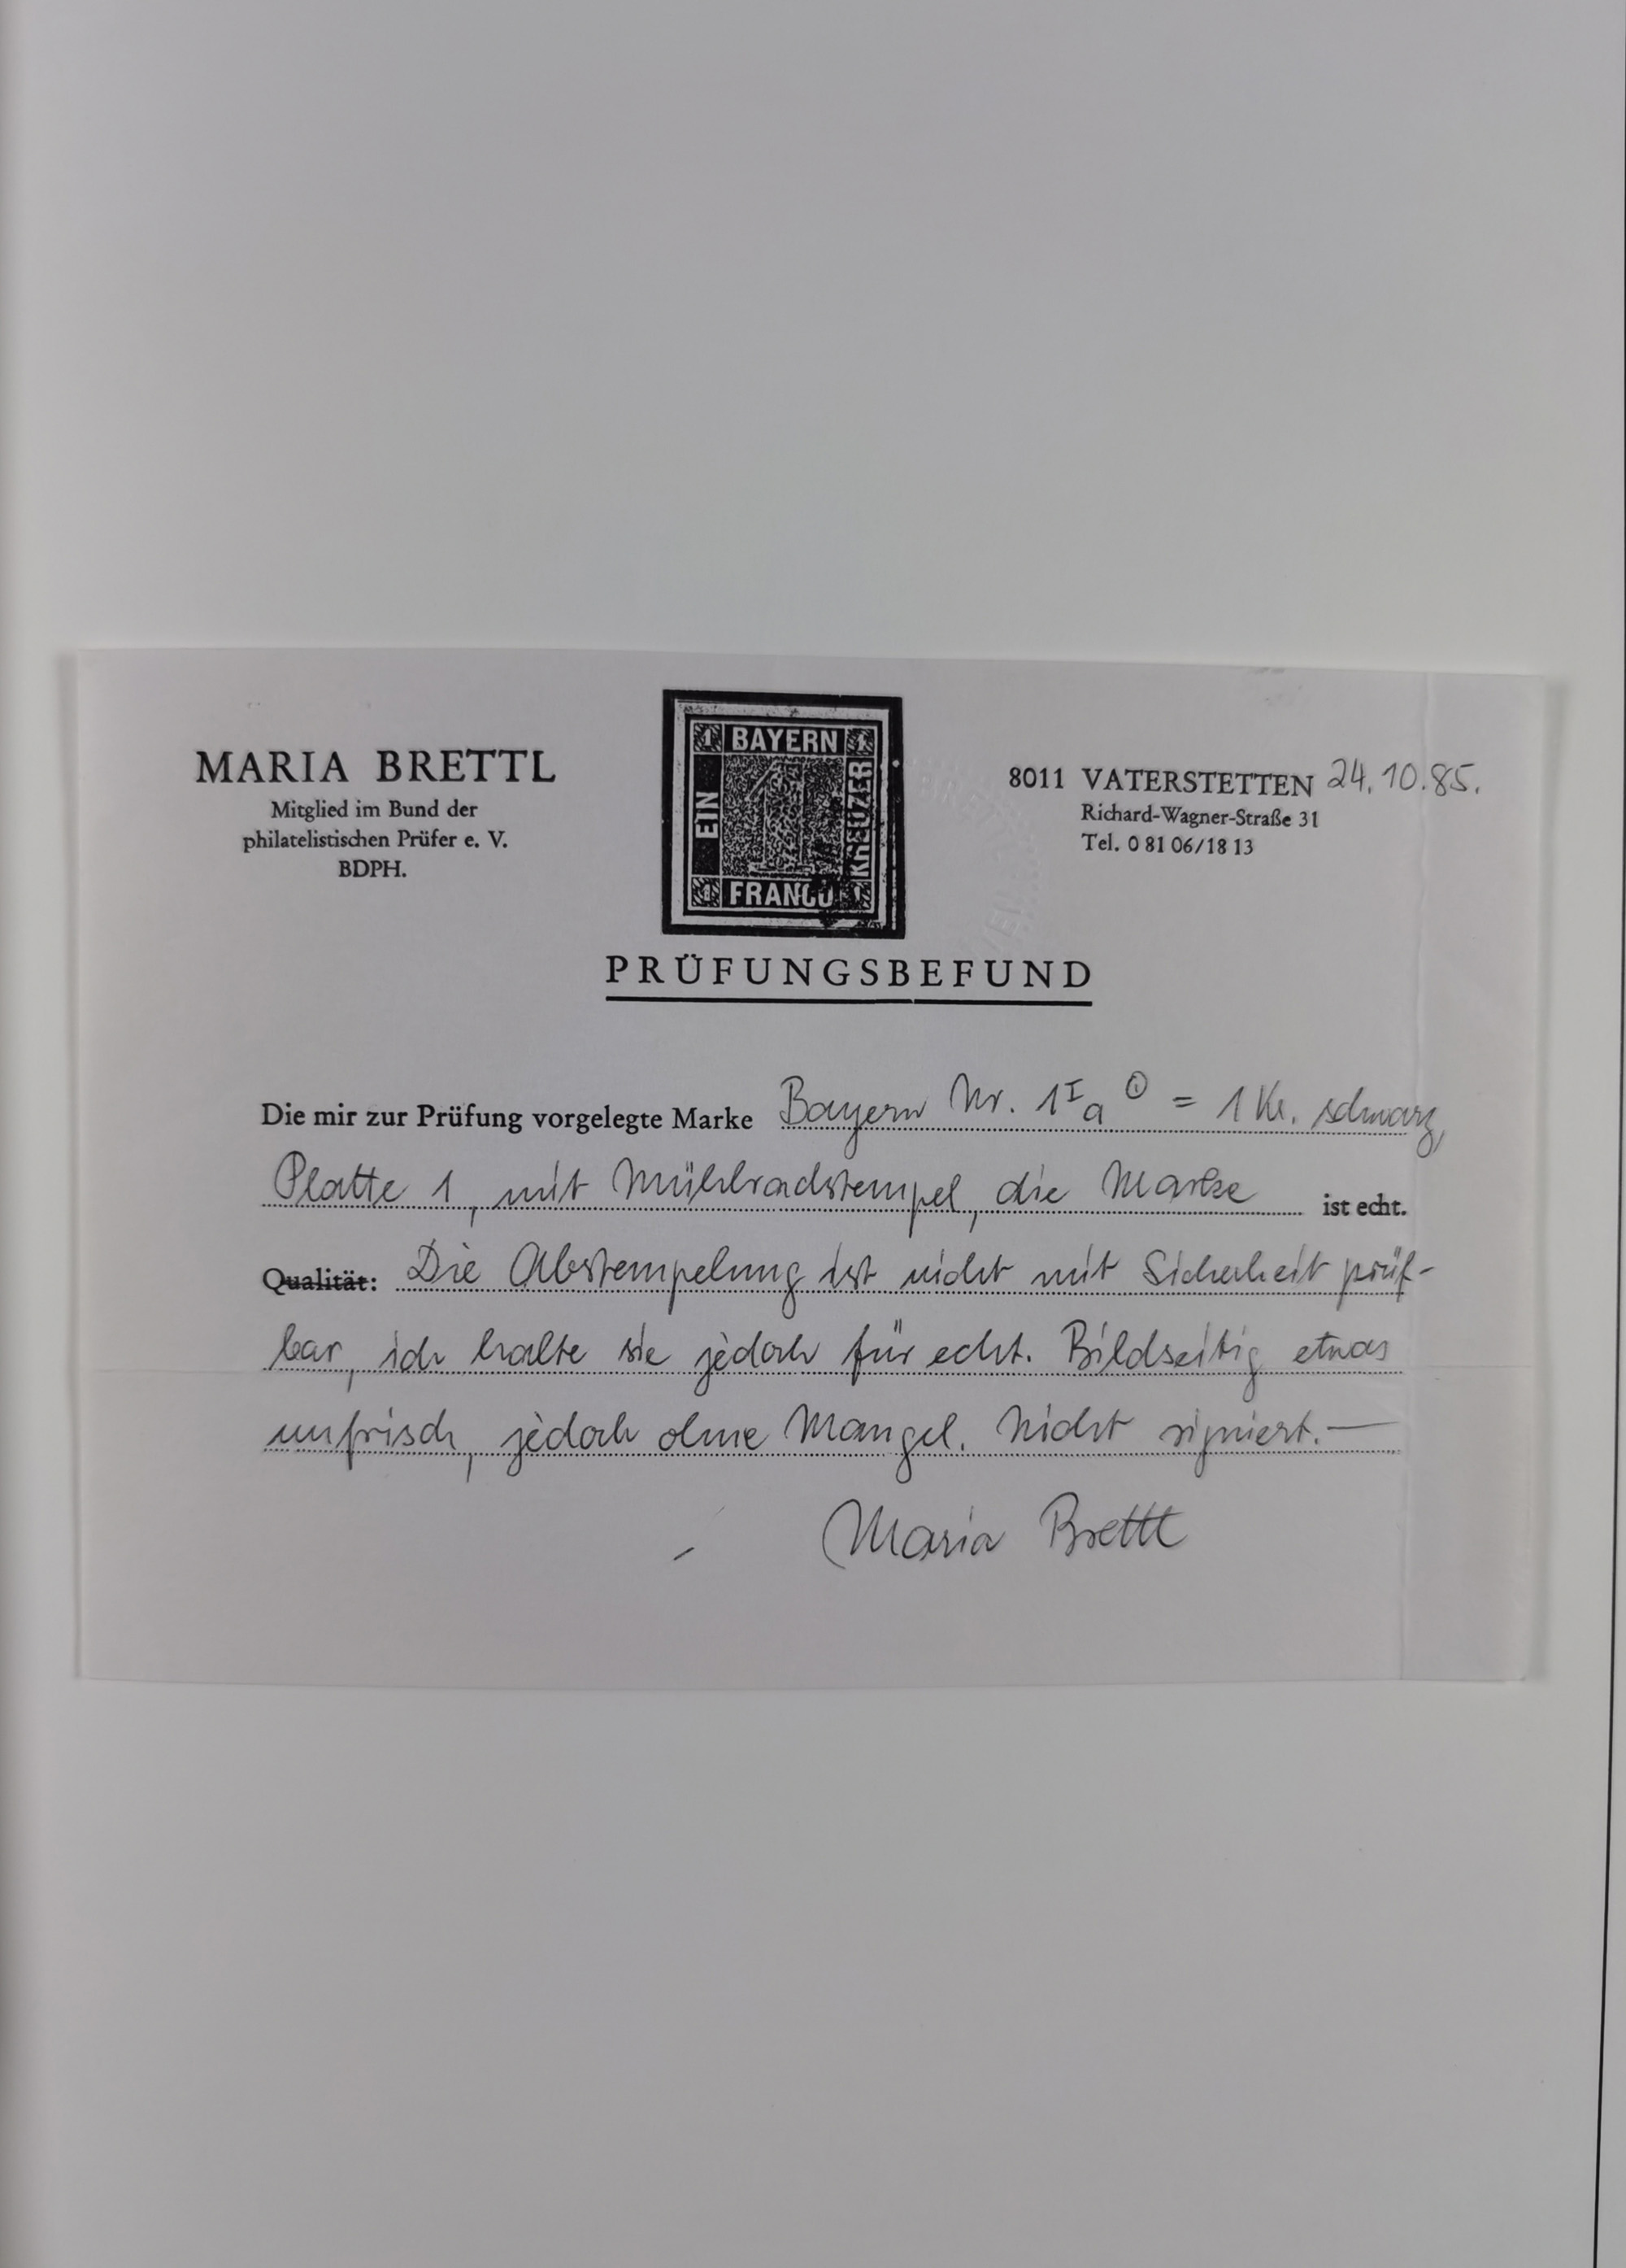 MARIA BRETTL
Mitglied im Bund der
philatelistischen Prüfer e. V.
BDPH.
1 BAYERN 1
EIN
1
KREUZER
1 FRANCO 1
8011 VATERSTETTEN 24.10.85.
Richard-Wagner-Straße 31
Tel. 0 81 06/18 13
PRÜFUNGSBEFUND
Die mir zur Prüfung vorgelegte Marke Bayern Nr. 1 I a ⊙ = 1 Kr. schwarz,
Platte 1, mit Mühlradstempel, die Marke ist echt.
Qualität: Die Abstempelung ist nicht mit Sicherheit prüf-
bar, ich halte sie jedoch für echt. Bildseitig etwas
unfrisch, jedoch ohne Mangel. Nicht signiert.—
Maria Brettl